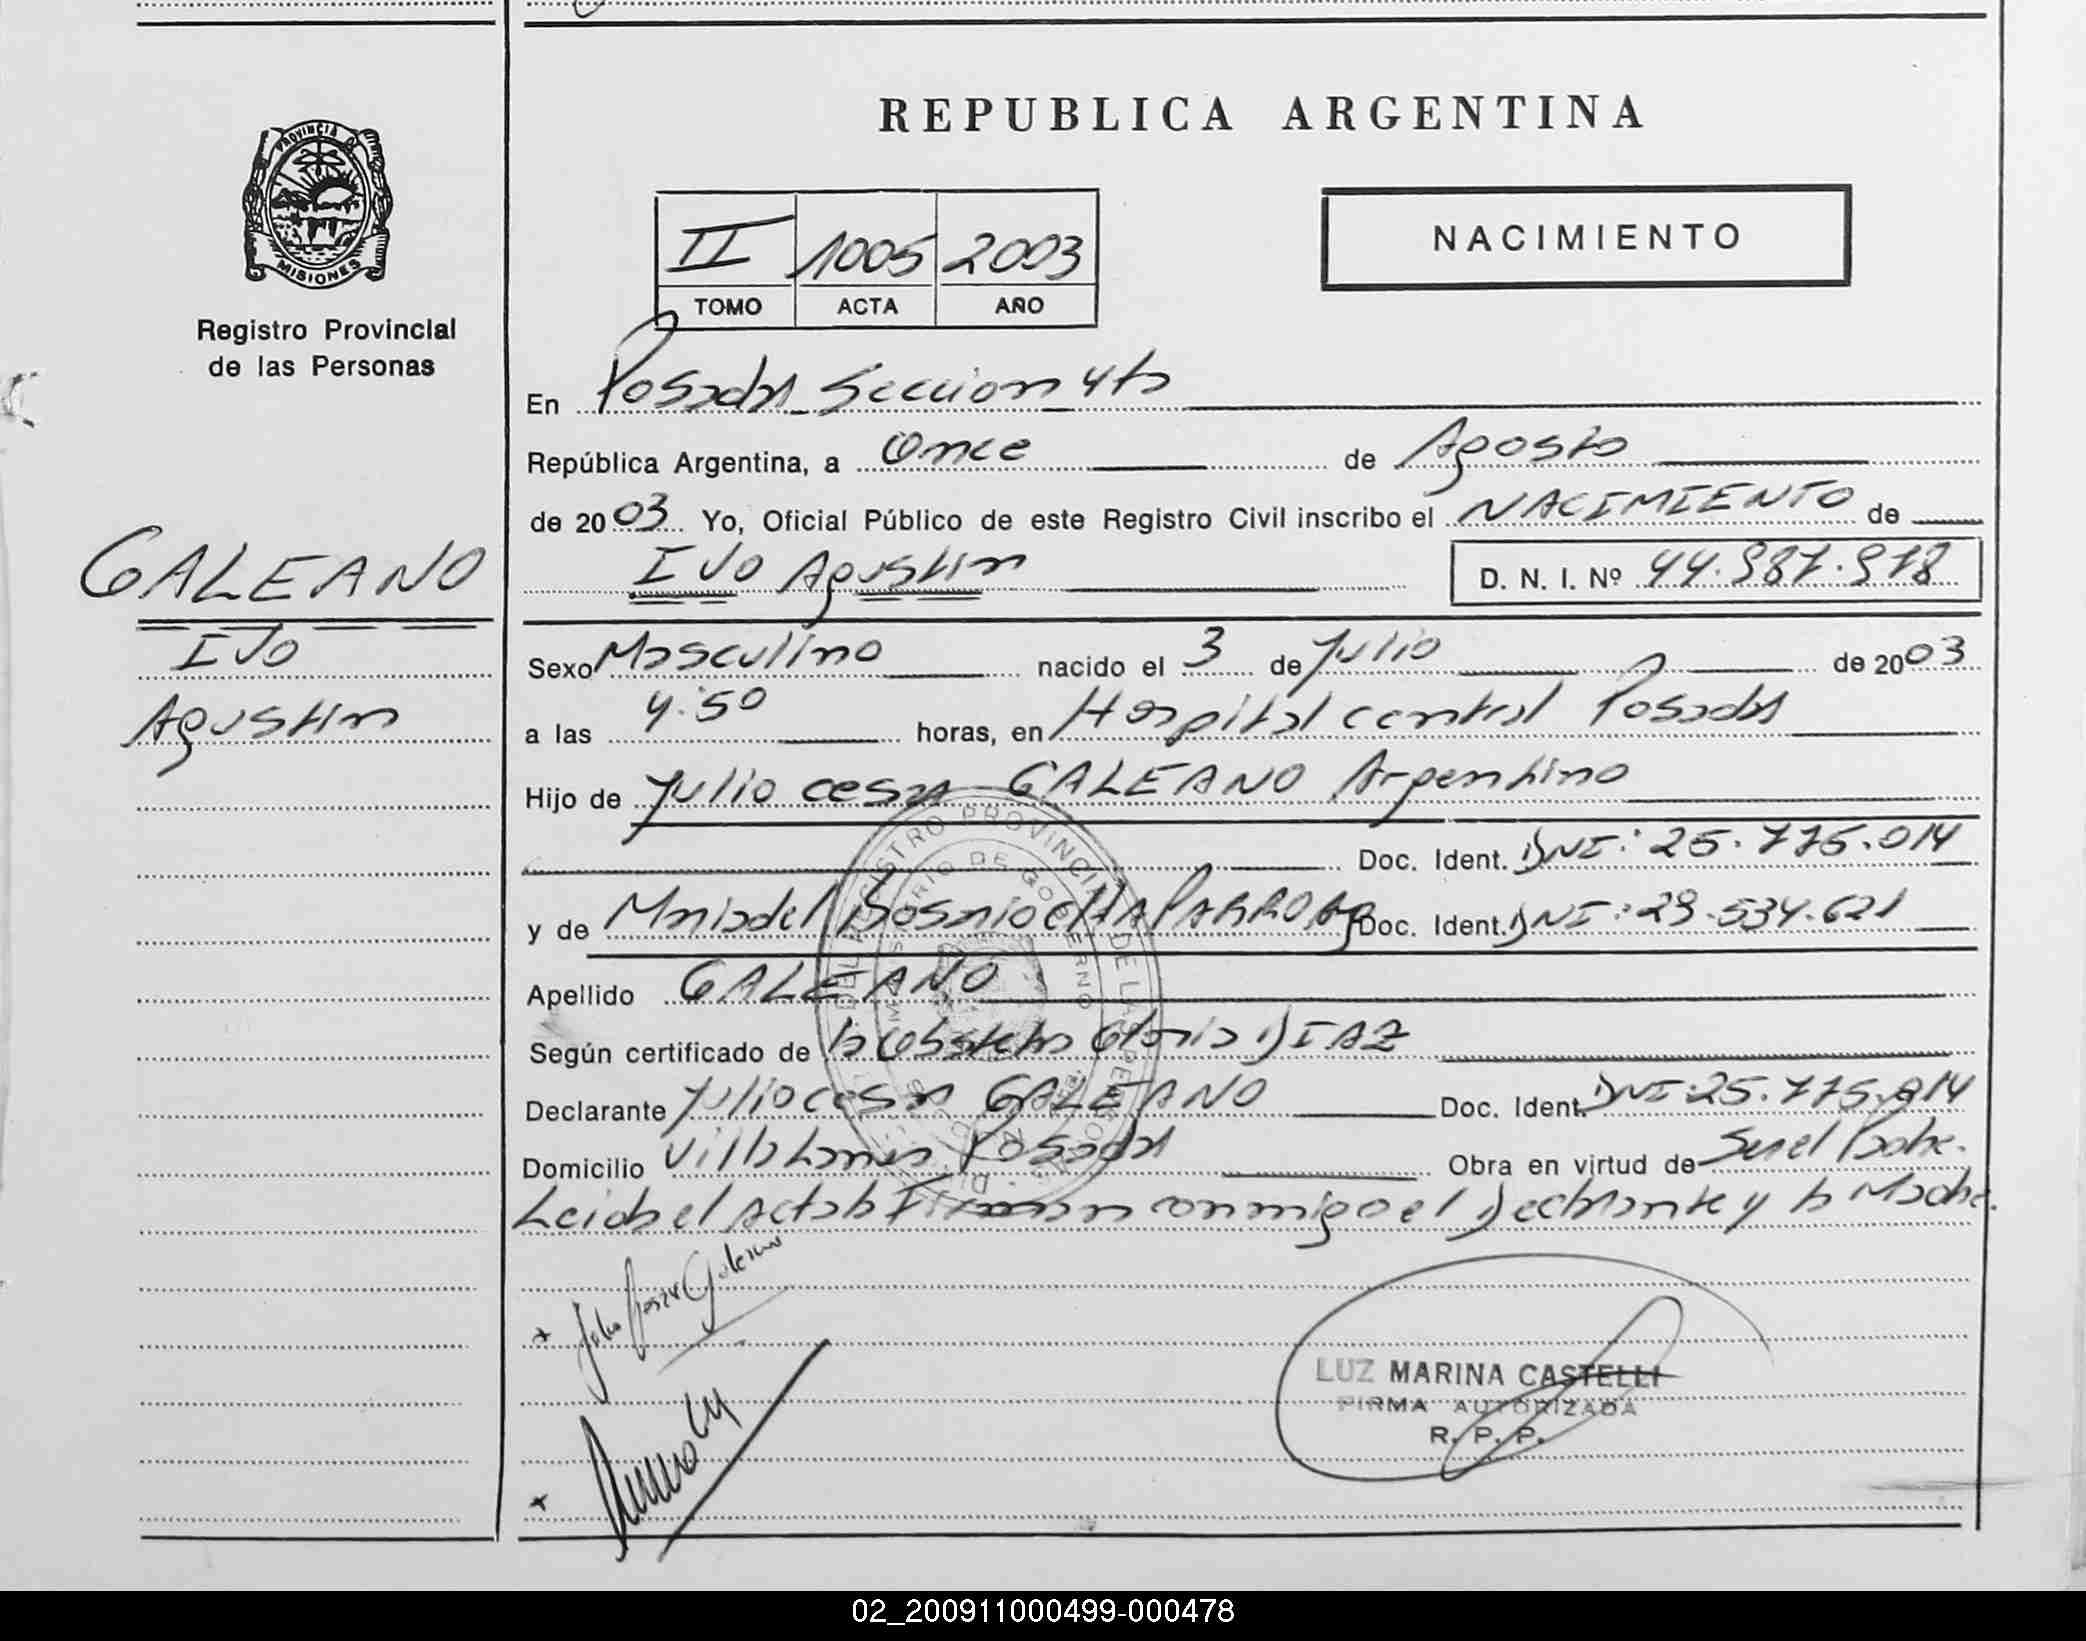 REPUBLICA ARGENTINA
PROVINCIA DE
MISIONES
Registro Provincial
de las Personas
II 1005 2003
TOMO ACTA AÑO
NACIMIENTO
GALEANO
IVO
Agustin
En Posadas Seccion 4ta
República Argentina, a Once de Agosto
de 2003 Yo, Oficial Público de este Registro Civil inscribo el NACIMIENTO de
IVO Agustin D. N. I. Nº 44.987.978
Sexo Masculino nacido el 3 de Julio de 2003
a las 4:50 horas, en Hospital central Posadas
Hijo de Julio cesar GALEANO Argentino
Doc. Ident. DNI: 25.775.014
y de Maria del Rosario Doc. Ident. DNI: 29.534.621
Apellido GALEANO
Según certificado de la Obstetra Gloria DIAZ
Declarante Julio cesar GALEANO Doc. Ident. DNI: 25.775.014
Domicilio Villa Posadas Obra en virtud de Ser el Padre.
Leida el Acta la Firman conmigo el Declarante y la Madre.
LUZ MARINA CASTELLI
FIRMA AUTORIZADA
R. P. P.
02_200911000499-000478